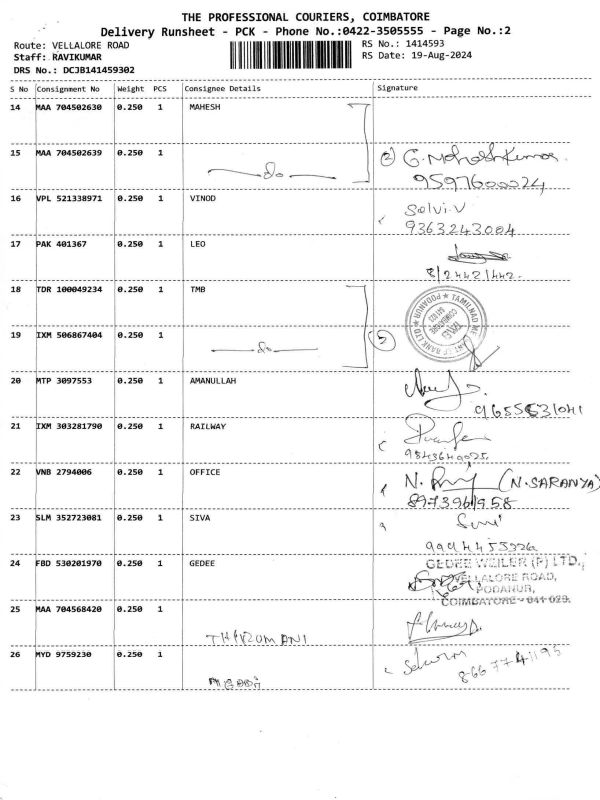 THE PROFESSIONAL COURIERS, COIMBATORE
Delivery Runsheet - PCK - Phone No.:0422-3505555 - Page No.:2
Route: VELLALORE ROAD RS No.: 1414593
Staff: RAVIKUMAR RS Date: 19-Aug-2024
DRS No.: DCJB141459302
S No Consignment No Weight PCS Consignee Details Signature
14 MAA 704502630 0.250 1 MAHESH
15 MAA 704502639 0.250 1 -do- (2) G. Mahesh Kumar.
9597600024
16 VPL 521338971 0.250 1 VINOD Selvi.V
9363243004
17 PAK 401367 0.250 1 LEO
18 TDR 100049234 0.250 1 TMB
19 IXM 506867404 0.250 1 -do-
20 MTP 3097553 0.250 1 AMANULLAH
9655631041
21 IXM 303281790 0.250 1 RAILWAY
9843640025
22 VNB 2794006 0.250 1 OFFICE N. (N.SARANYA)
8973961958
23 SLM 352723081 0.250 1 SIVA
24 FBD 530201970 0.250 1 GEDEE GEDEE WEILER (P) LTD.,
VELLALORE ROAD,
PODANUR,
COIMBATORE - 641 023.
25 MAA 704568420 0.250 1 THIROMANI
26 MYD 9759230 0.250 1
8667741195